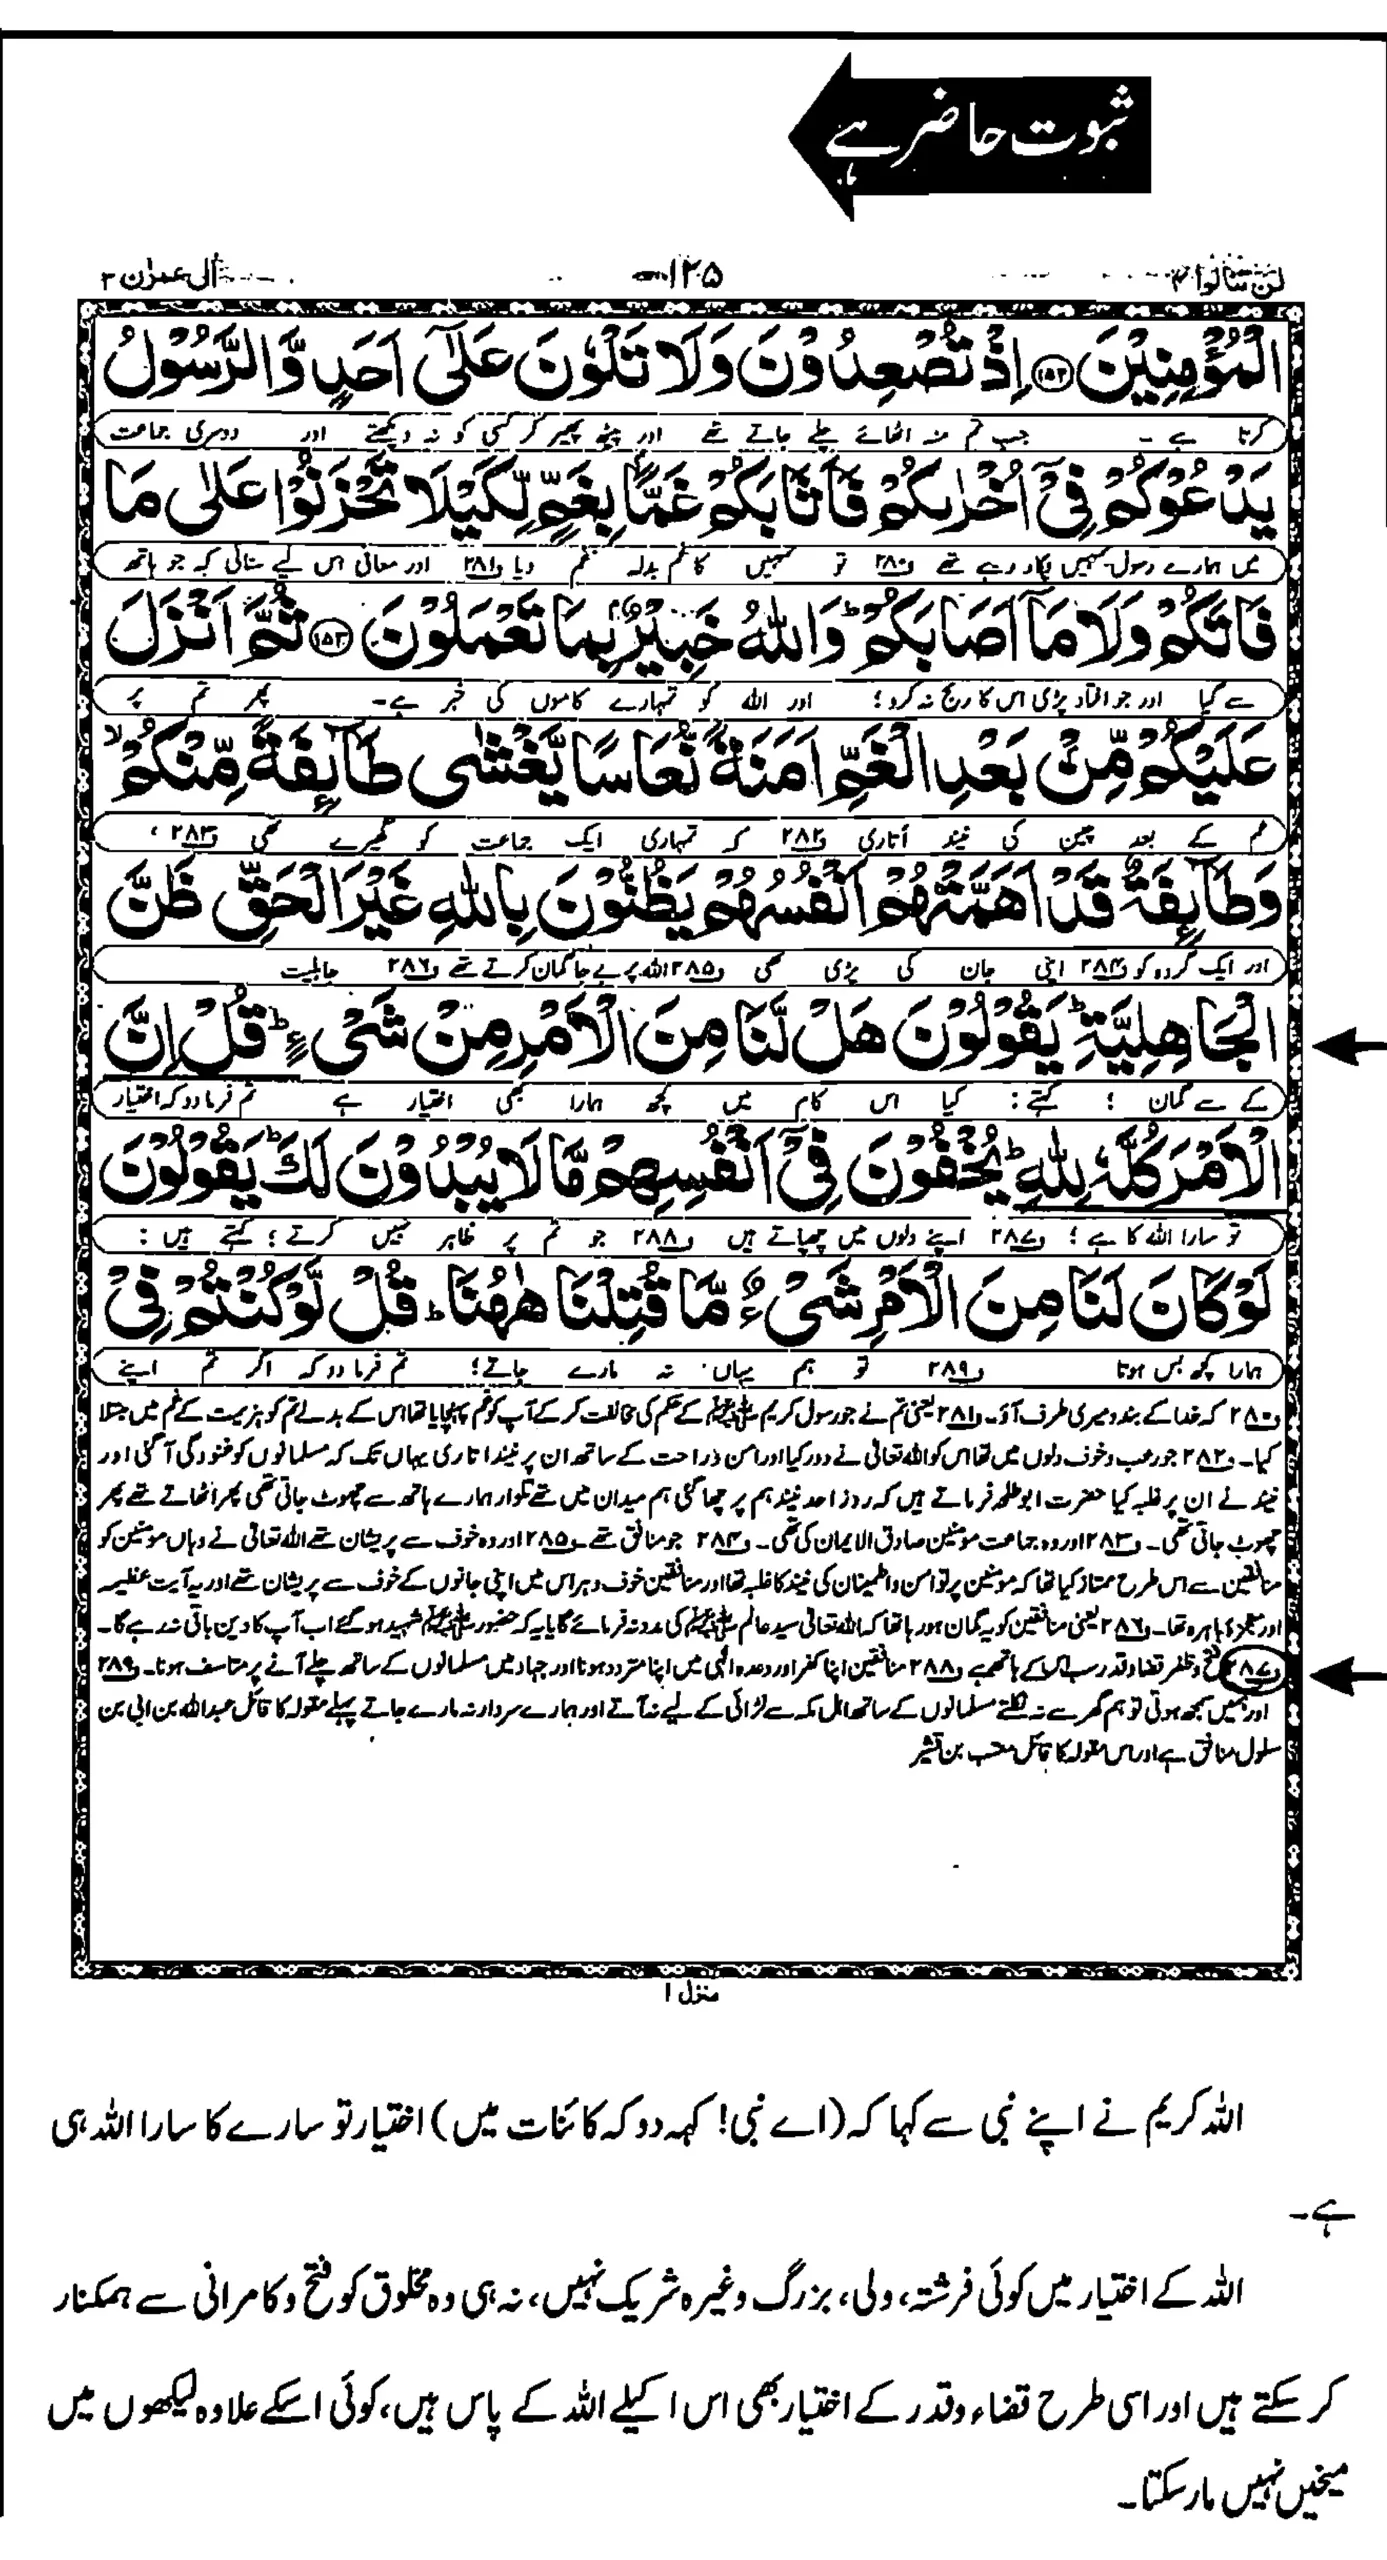 ثبوت حاضر ہے
لن تنالوا ۴ ۱۲۵ اٰل عمرٰن ۳
الْمُؤْمِنِيْنَ ﴿۱۵۲﴾ اِذْ تُصْعِدُوْنَ وَلَا تَلْوٗنَ عَلٰۤى اَحَدٍ وَّالرَّسُوْلُ
کرتا ہے ۔ جب تم منہ اٹھائے چلے جاتے تھے اور پیٹھ پھیر کر کسی کو نہ دیکھتے اور دوسری جماعت
يَدْعُوْكُمْ فِىْۤ اُخْرٰىكُمْ فَاَثَابَكُمْ غَمًّۢا بِغَمٍّ لِّكَيْلَا تَحْزَنُوْا عَلٰى مَا
میں ہمارے رسول تمہیں پکار رہے تھے ۲۸۰ تو تمہیں غم کا بدلہ غم دیا ۲۸۱ اور معافی اس لیے سنائی کہ جو ہاتھ
فَاتَكُمْ وَلَا مَاۤ اَصَابَكُمْ ؕ وَاللّٰهُ خَبِيْرٌۢ بِمَا تَعْمَلُوْنَ ﴿۱۵۳﴾ ثُمَّ اَنْزَلَ
سے گیا اور جو افتاد پڑی اس کا رنج نہ کرو؛ اور اللہ کو تمہارے کاموں کی خبر ہے۔ پھر تم پر
عَلَيْكُمْ مِّنْۢ بَعْدِ الْغَمِّ اَمَنَةً نُّعَاسًا يَّغْشٰى طَآىِٕفَةً مِّنْكُمْ ۙ
غم کے بعد چین کی نیند اتاری ۲۸۲ کہ تمہاری ایک جماعت کو گھیرے تھی ۲۸۳ ،
وَطَآىِٕفَةٌ قَدْ اَهَمَّتْهُمْ اَنْفُسُهُمْ يَظُنُّوْنَ بِاللّٰهِ غَيْرَ الْحَقِّ ظَنَّ
اور ایک گروہ کو ۲۸۴ اپنی جان کی پڑی تھی ۲۸۵ اللہ پر بے جا گمان کرتے تھے ۲۸۶ جاہلیت
الْجَاهِلِيَّةِ ؕ يَقُوْلُوْنَ هَلْ لَّنَا مِنَ الْاَمْرِ مِنْ شَىْءٍ ؕ قُلْ اِنَّ
کے سے گمان ؛ کہتے: کیا اس کام میں کچھ ہمارا بھی اختیار ہے تم فرما دو کہ اختیار
الْاَمْرَ كُلَّهٗ لِلّٰهِ ؕ يُخْفُوْنَ فِىْۤ اَنْفُسِهِمْ مَّا لَا يُبْدُوْنَ لَكَ ؕ يَقُوْلُوْنَ
تو سارا اللہ کا ہے ؛ ۲۸۷ اپنے دلوں میں چھپاتے ہیں ۲۸۸ جو تم پر ظاہر نہیں کرتے؛ کہتے ہیں:
لَوْ كَانَ لَنَا مِنَ الْاَمْرِ شَىْءٌ مَّا قُتِلْنَا هٰهُنَا ؕ قُلْ لَّوْ كُنْتُمْ فِىْ
ہمارا کچھ بس ہوتا ۲۸۹ تو ہم یہاں نہ مارے جاتے؛ تم فرما دو کہ اگر تم اپنے
۲۸۰ کہ خدا کے بندو میری طرف آؤ۔ ۲۸۱ یعنی تم نے جو رسول کریم ﷺ کے حکم کی مخالفت کر کے آپ کو غم پہنچایا تھا اس کے بدلے تم کو ہزیمت کے غم میں مبتلا
کیا۔ ۲۸۲ جو رعب و خوف دلوں میں تھا اس کو اللہ تعالیٰ نے دور کیا اور امن و راحت کے ساتھ ان پر نیند اتاری یہاں تک کہ مسلمانوں کو غنودگی آ گئی اور
نیند نے ان پر غلبہ کیا حضرت ابو طلحہ فرماتے ہیں کہ روز احد نیند ہم پر چھا گئی ہم میدان میں تھے تلوار ہمارے ہاتھ سے چھوٹ جاتی تھی پھر اٹھاتے تھے پھر
چھوٹ جاتی تھی۔ ۲۸۳ اور وہ جماعت مومنین صادق الایمان کی تھی۔ ۲۸۴ جو منافق تھے ۲۸۵ اور وہ خوف سے پریشان تھے اللہ تعالیٰ نے وہاں مومنین کو
منافقین سے اس طرح ممتاز کیا تھا کہ مومنین پر تو امن و اطمینان کی نیند کا غلبہ تھا اور منافقین خوف و ہراس میں اپنی جانوں کے خوف سے پریشان تھے اور یہ آیت عظیمہ
اور معجزہ باہرہ تھا۔ ۲۸۶ یعنی منافقین کو یہ گمان ہو رہا تھا کہ اللہ تعالیٰ سید عالم ﷺ کی مدد نہ فرمائے گا یا یہ کہ حضور ﷺ شہید ہو گئے اب آپ کا دین باقی نہ رہے گا۔
۲۸۷ فتح و ظفر قضا و قدر سب اس کے ہاتھ ہے ۲۸۸ منافقین اپنا کفر اور وعدہ الٰہی میں اپنا متردد ہونا اور جہاد میں مسلمانوں کے ساتھ چلے آنے پر متاسف ہونا۔ ۲۸۹
اور ہمیں سمجھ ہوتی تو ہم گھر سے نہ نکلتے مسلمانوں کے ساتھ اہل مکہ سے لڑائی کے لیے نہ آتے اور ہمارے سردار نہ مارے جاتے پہلے مقولہ کا قائل عبداللہ بن ابی بن
سلول منافق ہے اور اس مقولہ کا قائل معتب بن قشیر
منزل ۱
اللہ کریم نے اپنے نبی سے کہا کہ (اے نبی! کہہ دو کہ کائنات میں) اختیار تو سارے کا سارا اللہ ہی
ہے۔
اللہ کے اختیار میں کوئی فرشتہ، ولی، بزرگ وغیرہ شریک نہیں، نہ ہی وہ مخلوق کو فتح و کامرانی سے ہمکنار
کر سکتے ہیں اور اسی طرح قضاء و قدر کے اختیار بھی اس اکیلے اللہ کے پاس ہیں، کوئی اسکے علاوہ لیکھوں میں
میخیں نہیں مار سکتا۔